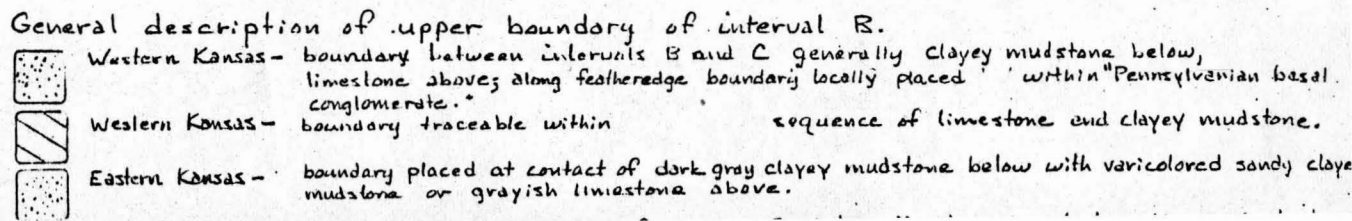 General description of upper boundary of interval B.
Western Kansas - boundary between intervals B and C generally clayey mudstone below,
limestone above; along featheredge boundary locally placed within "Pennsylvanian basal
conglomerate."
Western Kansas - boundary traceable within sequence of limestone and clayey mudstone.
Eastern Kansas - boundary placed at contact of dark gray clayey mudstone below with varicolored sandy claye
mudstone or grayish limestone above.